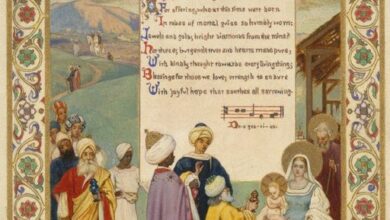 For offering, who at this time were born
In robes of mortal guise so humbly worn;
Jewels and gold, bright diamonds from the mine?
Nay there; but gentle lives and hearts made pure;
With kindly thought towards every living thing;
Blessings for those we love; strength to endure
With joyful hope that soothes all sorrowing.
Deo gratias.